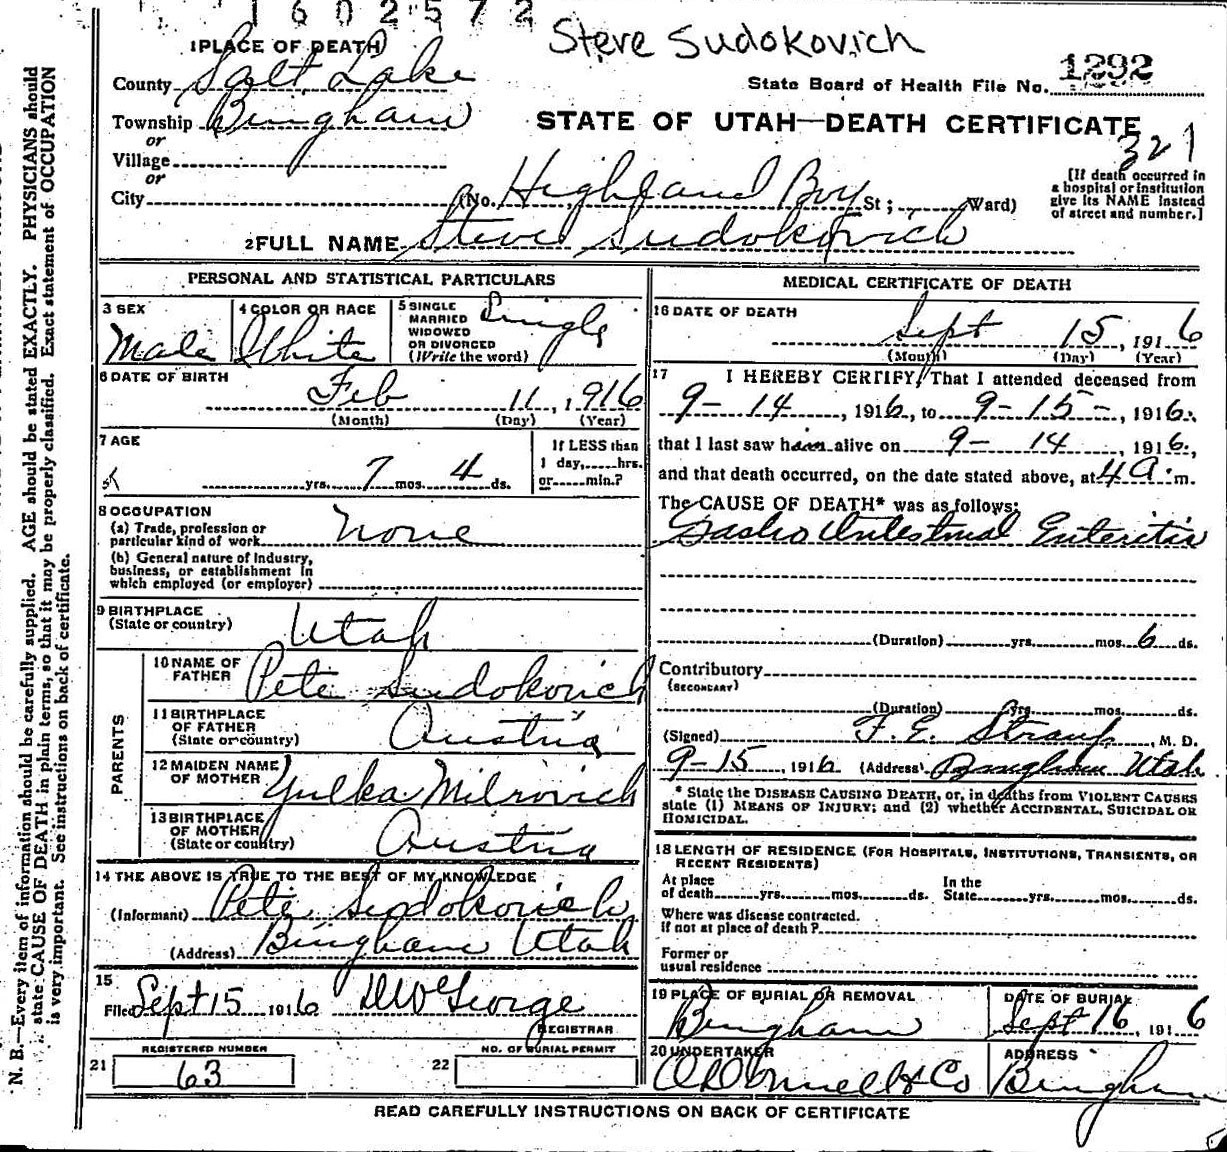 1602572
Steve Sudokovich
1 PLACE OF DEATH
County Salt Lake
State Board of Health File No. 1292
Township Bingham
STATE OF UTAH—DEATH CERTIFICATE
or
321
Village
or
[If death occurred in
a hospital or institution
give its NAME instead
of street and number.]
City (No. Highland Boy St; Ward)
2 FULL NAME Steve Sudokovich
PERSONAL AND STATISTICAL PARTICULARS
3 SEX
Male
4 COLOR OR RACE
White
5 SINGLE
MARRIED
WIDOWED
OR DIVORCED
(Write the word)
Single
6 DATE OF BIRTH
Feb 11, 1916
(Month) (Day) (Year)
7 AGE
yrs. 7 mos. 4 ds.
If LESS than
1 day, hrs.
or min.?
8 OCCUPATION
(a) Trade, profession or
particular kind of work None
(b) General nature of industry,
business, or establishment in
which employed (or employer)
9 BIRTHPLACE
(State or country) Utah
PARENTS
10 NAME OF
FATHER Pete Sudokovich
11 BIRTHPLACE
OF FATHER
(State or country) Austria
12 MAIDEN NAME
OF MOTHER Yulka Milrovich
13 BIRTHPLACE
OF MOTHER
(State or country) Austria
14 THE ABOVE IS TRUE TO THE BEST OF MY KNOWLEDGE
(Informant) Pete Sudokovich
(Address) Bingham Utah
15
Filed Sept 15 1916
George
REGISTRAR
REGISTERED NUMBER
21 63
NO. OF BURIAL PERMIT
22
MEDICAL CERTIFICATE OF DEATH
16 DATE OF DEATH
Sept 15, 1916
(Month) (Day) (Year)
17 I HEREBY CERTIFY, That I attended deceased from
9-14, 1916, to 9-15-, 1916,
that I last saw him alive on 9-14, 1916,
and that death occurred, on the date stated above, at 4 a.m.
The CAUSE OF DEATH* was as follows:
Gastro Intestinal Enteritis
(Duration) yrs. mos. 6 ds.
Contributory
(SECONDARY)
(Duration) yrs. mos. ds.
(Signed) F. E. Straup, M. D.
9-15, 1916 (Address) Bingham Utah
* State the DISEASE CAUSING DEATH, or, in deaths from VIOLENT CAUSES
state (1) MEANS OF INJURY; and (2) whether ACCIDENTAL, SUICIDAL OR
HOMICIDAL.
18 LENGTH OF RESIDENCE (FOR HOSPITALS, INSTITUTIONS, TRANSIENTS, OR
RECENT RESIDENTS)
At place
of death yrs. mos. ds.
In the
State yrs. mos. ds.
Where was disease contracted.
If not at place of death?
Former or
usual residence
19 PLACE OF BURIAL OR REMOVAL
Bingham
DATE OF BURIAL
Sept 16, 1916
20 UNDERTAKER
O'Donnell & Co
ADDRESS
Bingham
READ CAREFULLY INSTRUCTIONS ON BACK OF CERTIFICATE
N. B.—Every item of information should be carefully supplied. AGE should be stated EXACTLY. PHYSICIANS should
state CAUSE OF DEATH in plain terms, so that it may be properly classified. Exact statement of OCCUPATION
is very important. See instructions on back of certificate.